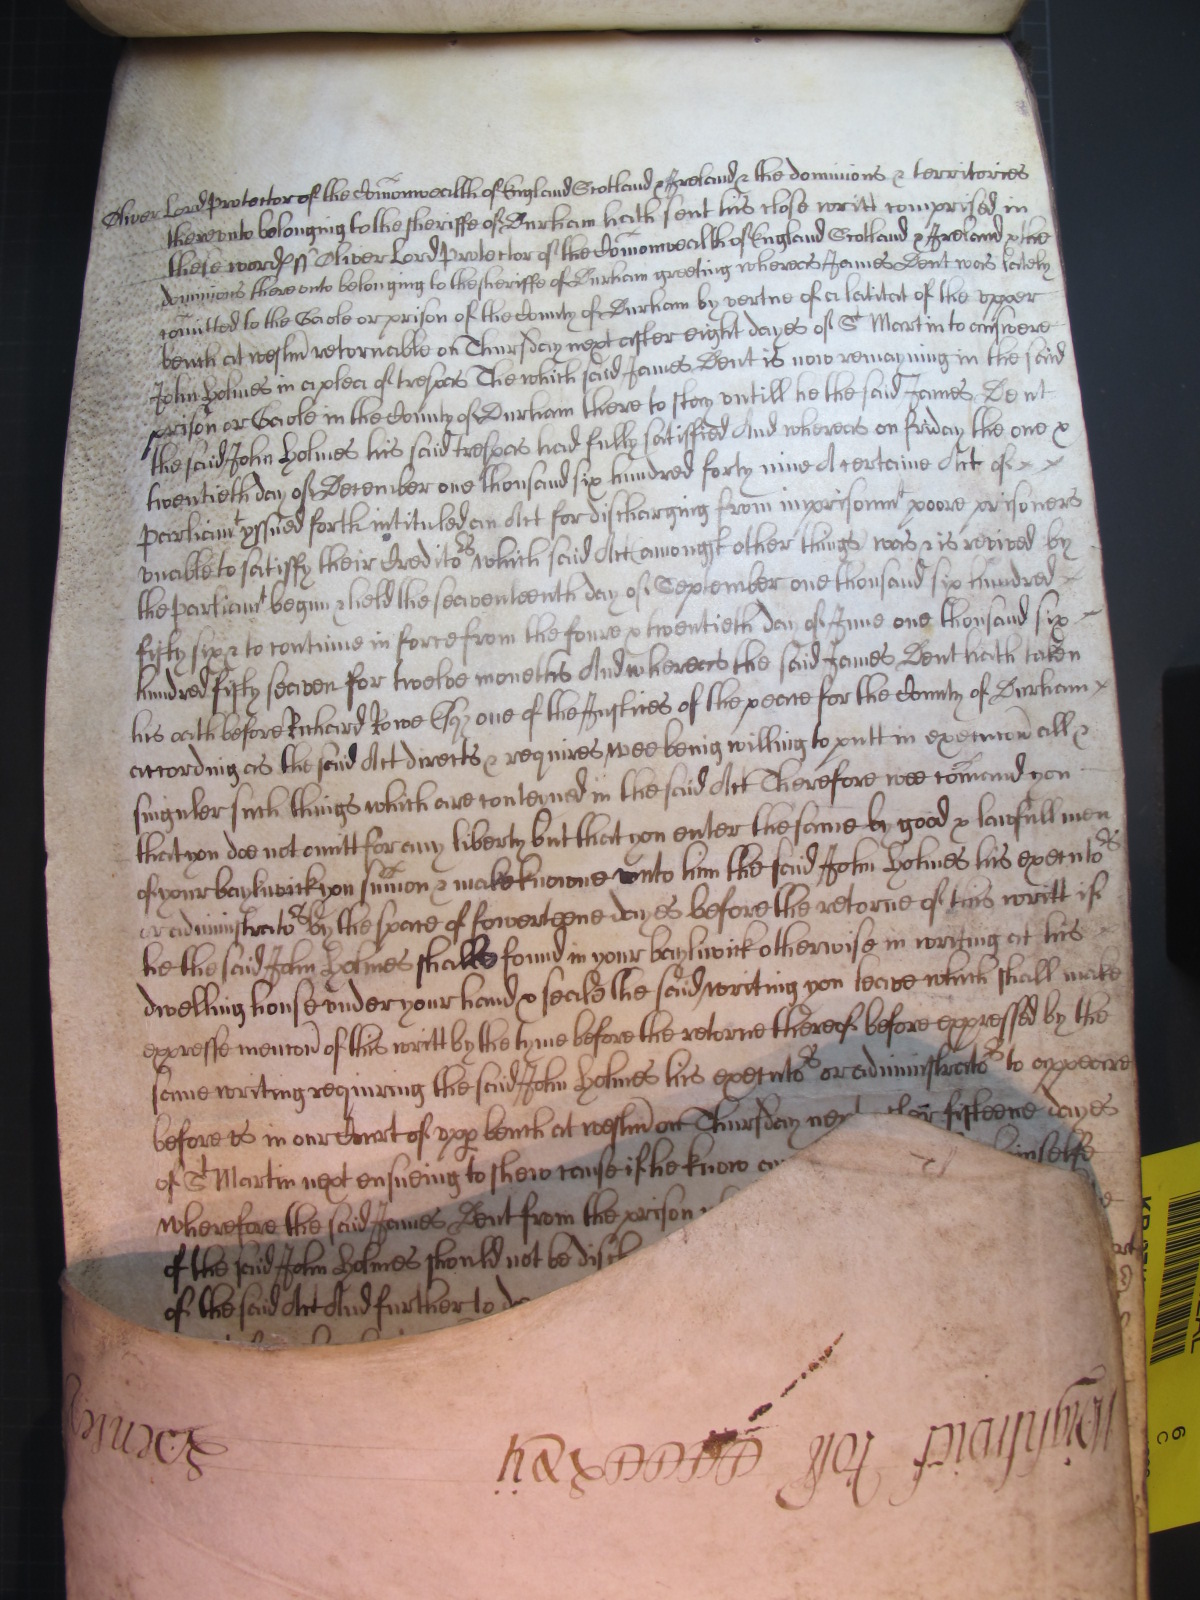 Oliver Lord Protector of the Com̄onwealth of England Scotland & Ireland & the dominions & territories
thereonto belonging to the Sheriffe of Durham hath sent his close writt comprised in
these words ss Oliver Lord Protector of the Com̄onwealth of England Scotland & Ireland & the
dominions there onto belonging to the Sheriffe of Durham greeting whereas James Dent was lately
com̄itted to the Gaole or prison of the County of Durham by vertue of a latitat of the upper
bench at Westm̄ retornable on Thursday next after eight dayes of St Martin to answere
John Holmes in a plea of trespas The which said James Dent is now remayning in the said
prison or Gaole in the County of Durham there to stay untill he the said James Dent
the said John Holmes his said trespas had fully satisfied And whereas on friday the one &
twentieth day of December one thousand six hundred forty nine A certaine Act of
Parliamt yssued forth intituled an Act for discharging from imprisonmt poore prisoners
unable to satisfy their Creditors which said Act (amongst other things) was & is revived by
the Parliamt begun & held the seaventeenth day of September one thousand six hundred
fifty six & to continue in force from the foure & twentieth day of June one thousand six
hundred fifty seaven for twelve moneths And whereas the said James Dent hath taken
his oath before Richard Rowe Esqr one of the Justices of the peace for the County of Durham
according as the said Act directs & requires, wee being willing to putt in execucon̄ all &
singuler such things which are conteyned in the said Act Therefore wee com̄and you
that you doe not omitt for any liberty but that you enter the same by good & lawfull men
of your bayliwick you sum̄on & make knowne unto him the said John Holmes his executors
or administrators by the space of fowerteene dayes before the retorne of this writt if
he the said John Holmes shalbe found in your bayliwick otherwise in writing at his
dwelling house under your hand & seale the said writing you leave which shall make
expresse mencon̄ of this writt by the tyme before the retorne thereof before expressed by the
same writing requiring the said John Holmes his executors or administrators to appeare
before us in our Court of upp bench at westm̄ on Thursday next fifteene dayes
of St Martin next ensueing to shew cause if he know himselfe
Wherefore the said James Dent from the prison
of the said John Holmes should not be disch
of the said Act And further to